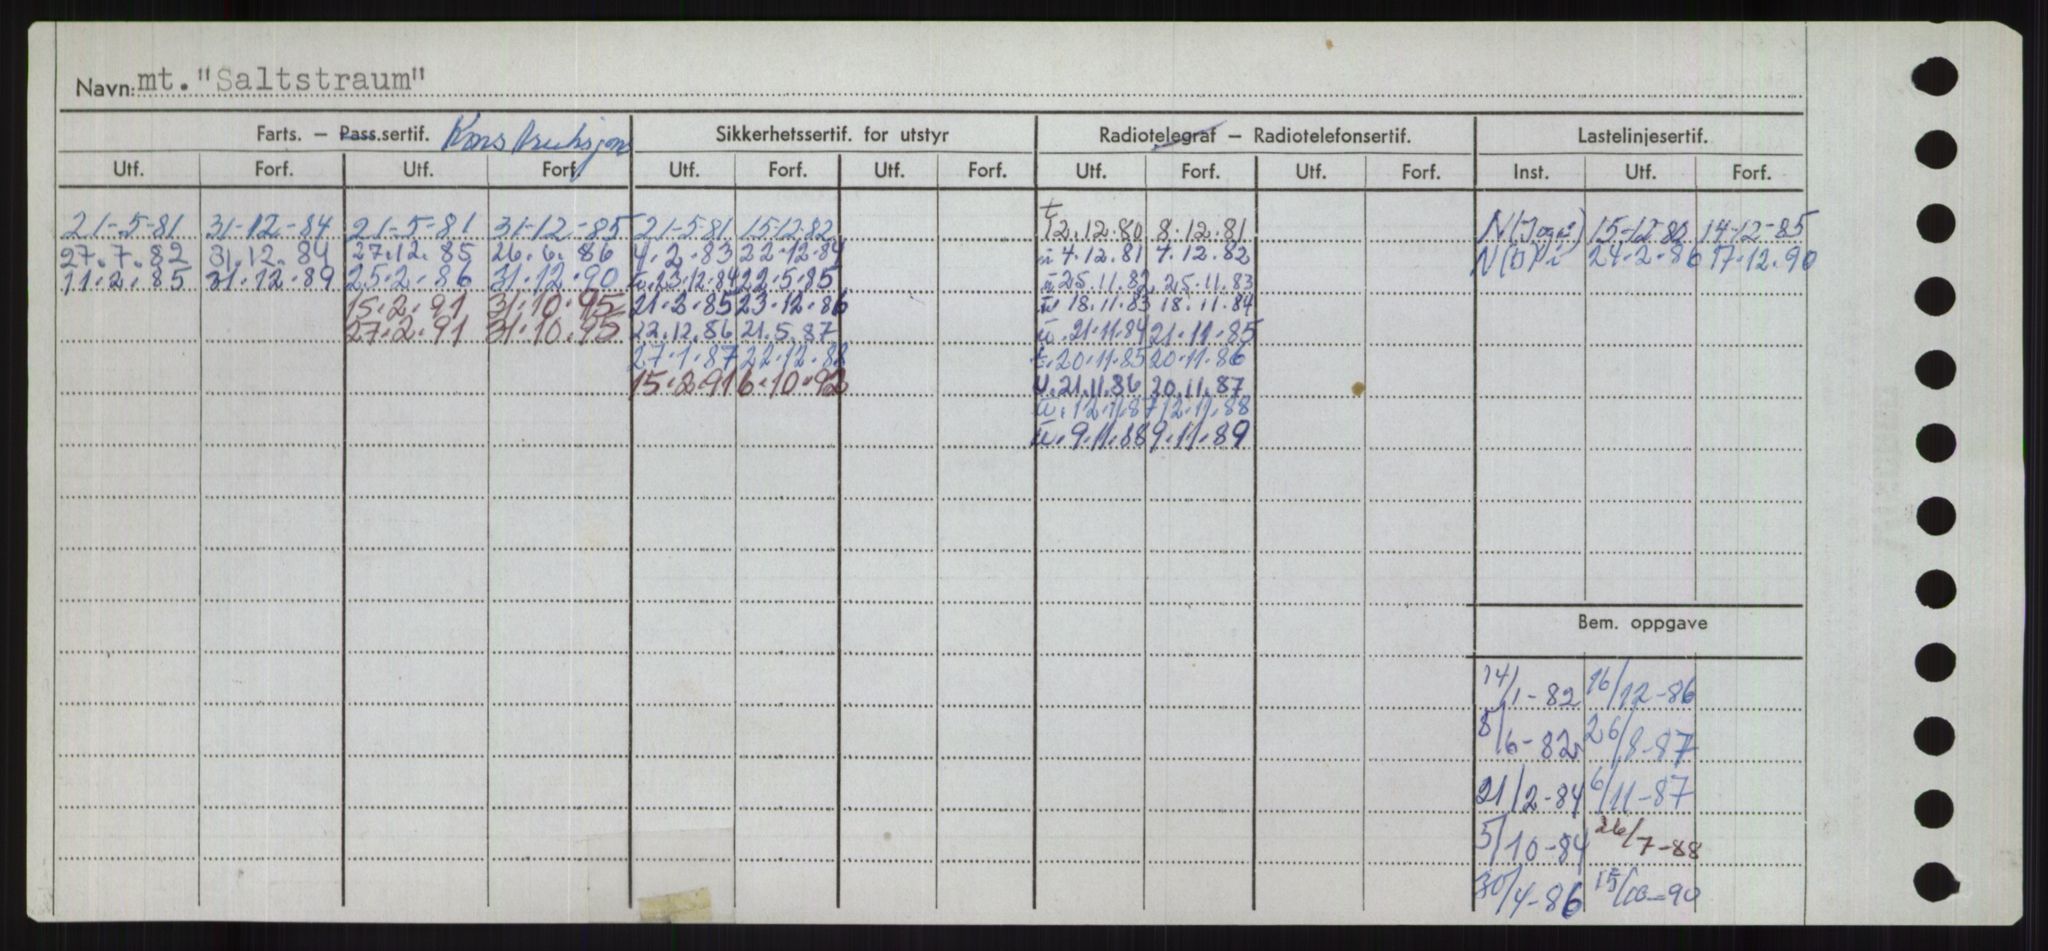 Navn: mt. "Saltstraum"
Farts. – Pass.sertif. Konstruksjon Sikkerhetssertif. for utstyr Radiotelegraf – Radiotelefonsertif. Lastelinjesertif.
Utf. Forf. Utf. Forf. Utf. Forf. Utf. Forf. Utf. Forf. Utf. Forf. Inst. Utf. Forf.
21-5-81 31-12-84 21-5-81 31-12-85 21-5-81 15-12.82 t 12.12.80 8.12.81 15-12-80 14-12-85
27.7.82 31.12.84 27.12.85 26.6.86 4.2.83 22.12.84 7.12.82 24.2.86 17.12.90
11.2.85 31.12.89 25.2.86 31.12.90 23.12.84 22.5.85 25.11.82 25.11.83
15.2.91 31.10.95 21.2.85 23.12.86 18.11.83 18.11.84
27.2.91 31.10.95 22.12.86 21.5.87 21.11.84 21.11.85
27.1.87 22.12.88 t.20.11.85 20.11.86
15.2.91 6.10.92 21.11.86 20.11.87
12.11.87 12.11.88
9.11.88 9.11.89
Bem. oppgave
14/1-82 16/12-86
8/6-82 26/8-87
21/2-84 6/11-87
5/10-84 26/7-88
30/4-86 15/10-90